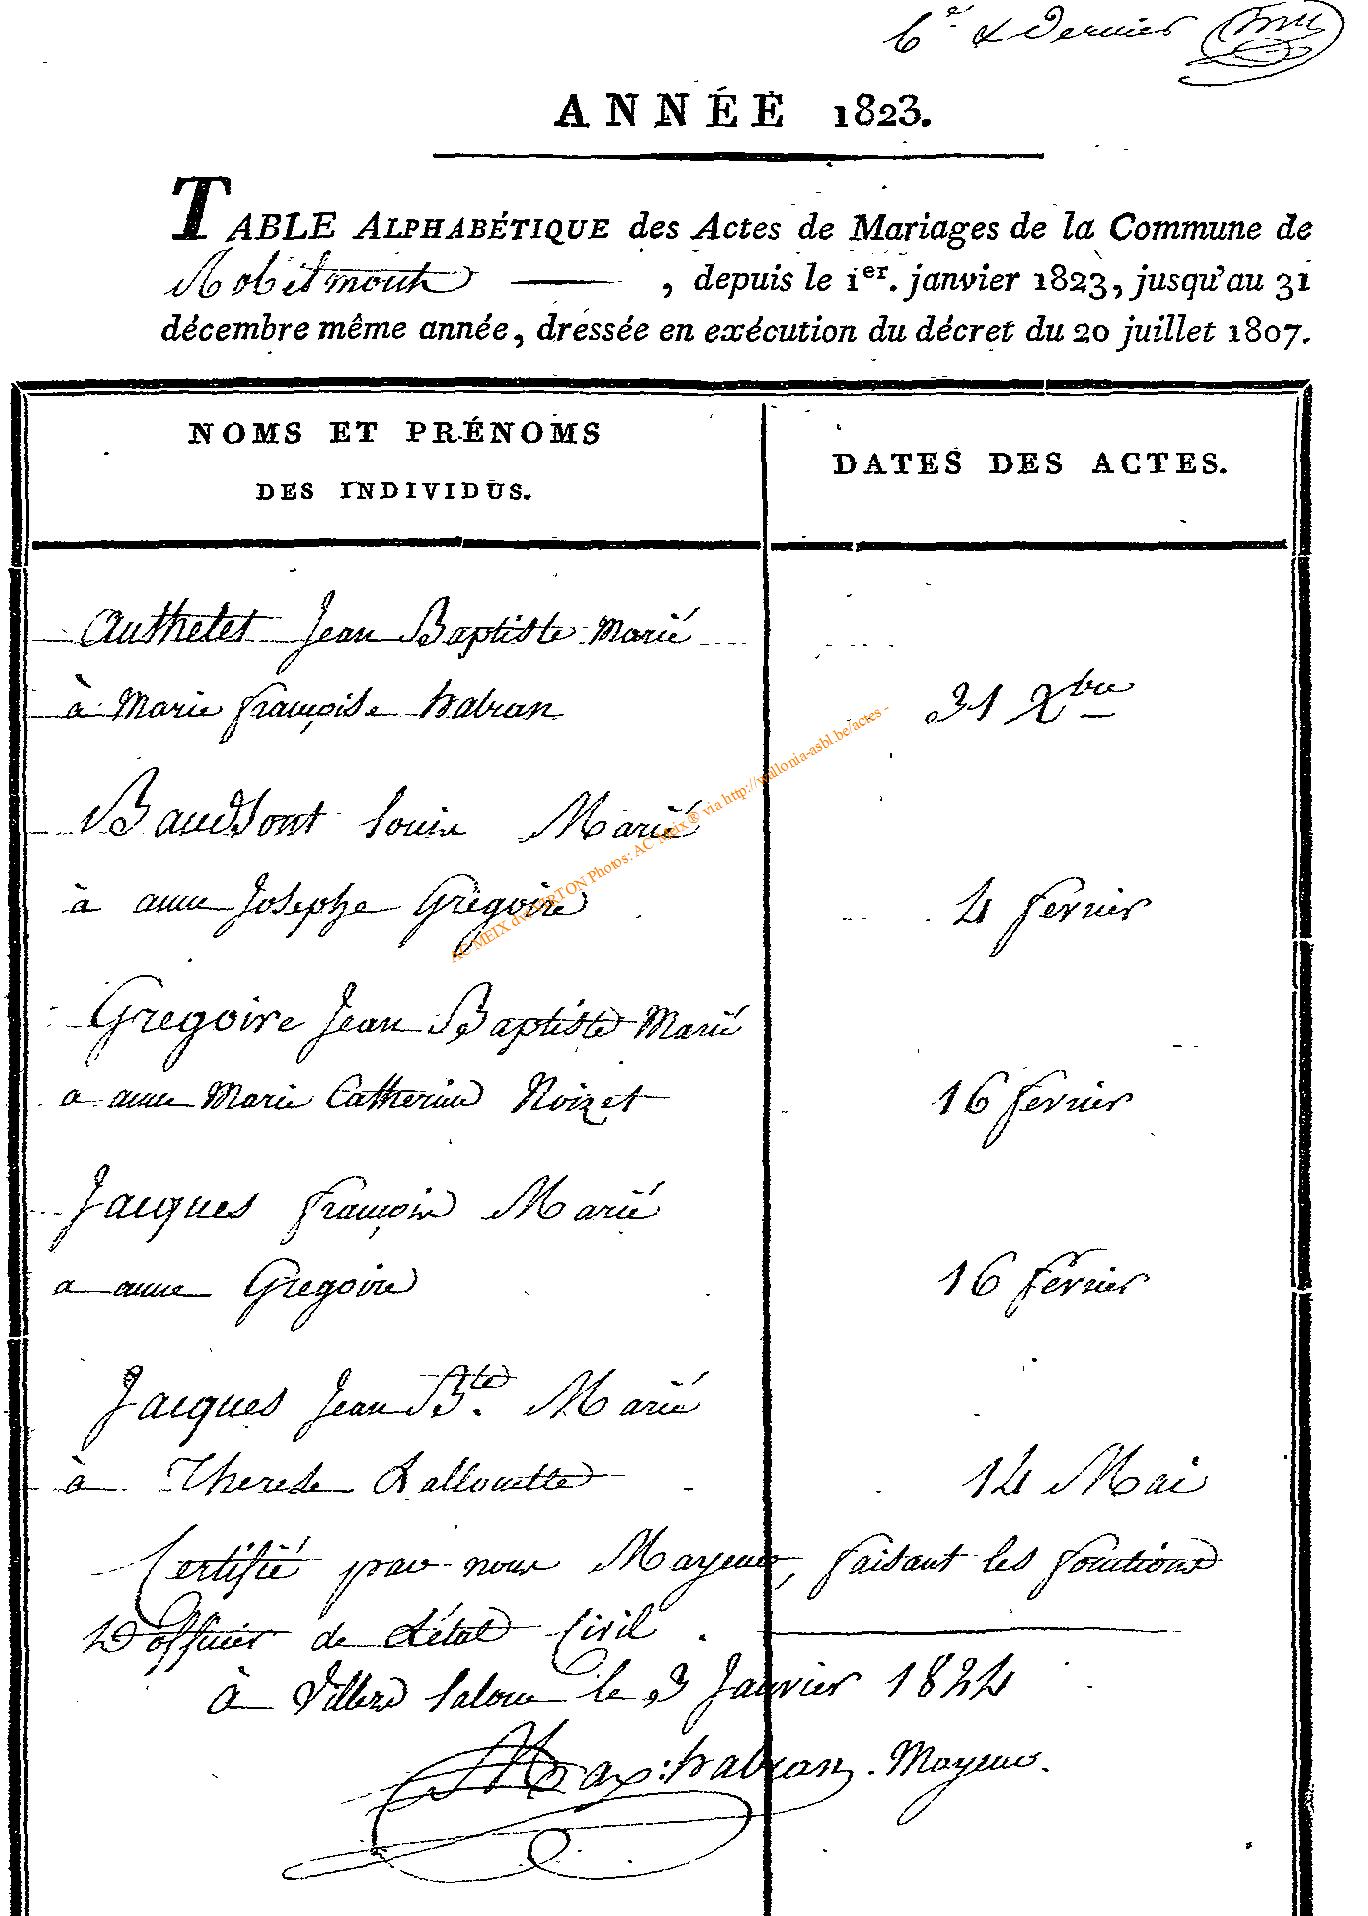 6e & Dernier
ANNÉE 1823.
TABLE ALPHABÉTIQUE des Actes de Mariages de la Commune de
Robelmont , depuis le 1er. janvier 1823, jusqu'au 31
décembre même année, dressée en exécution du décret du 20 juillet 1807.
NOMS ET PRÉNOMS
DES INDIVIDUS.
DATES DES ACTES.
Authelet Jean Baptiste Marié
à Marie françoise habran 31 Xbre
Baudson Louis Marié
à anne Josephe Grégoire 4 fevrier
Gregoire Jean Baptiste Marié
a anne Marie Catherine Noizet 16 fevrier
Jacques françois Marié
a anne Gregoire 16 fevrier
Jacques Jean Bte. Marié
à Therese Lallouette 14 Mai
Certifié par nous Mayeur, faisant les fonctions
D'officier de L'état Civil.
à Villers laloue le 3 Janvier 1824
Max: habran. Mayeur.
AC MEIX dvt VIRTON Photos: AC Meix ® via http://wallonia-asbl.be/actes -